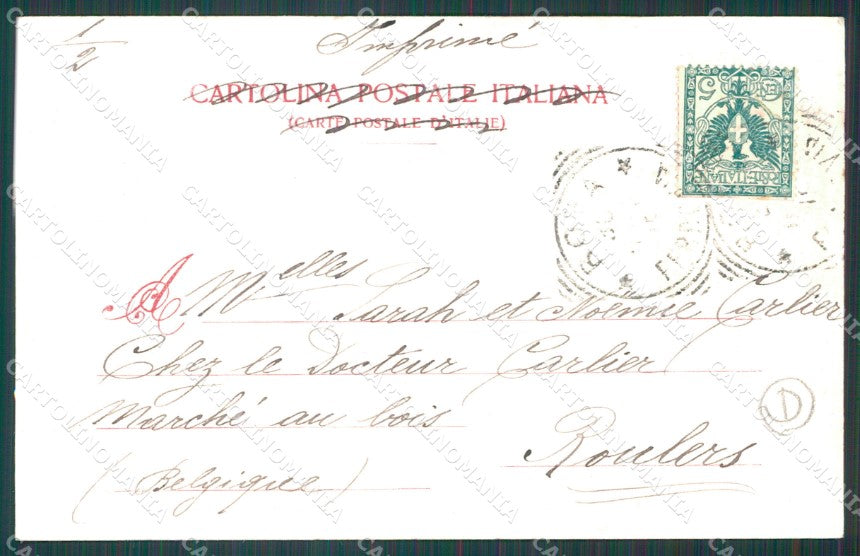 1/2
Imprimé
CARTOLINA POSTALE ITALIANA
(CARTE POSTALE D'ITALIE)
CENT 5
POSTE ITALIANE
ROMA
A Melles Sarah et Noémie Carlier
Chez le Docteur Carlier
Marché au bois
Roulers
(Belgique)
D
CARTOLINOMANIA